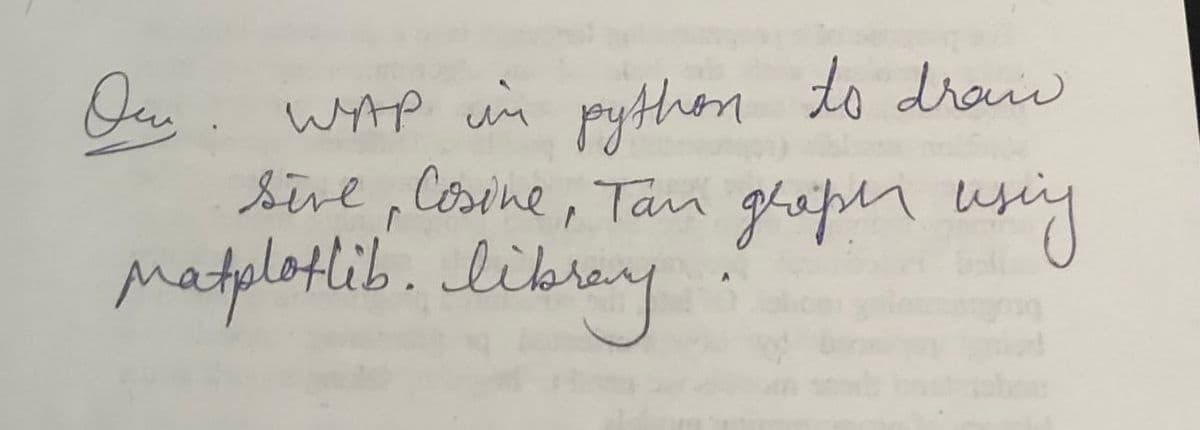 Que. WAP in python to draw
sine, Cosine, Tan graph using
Matplotlib. library.